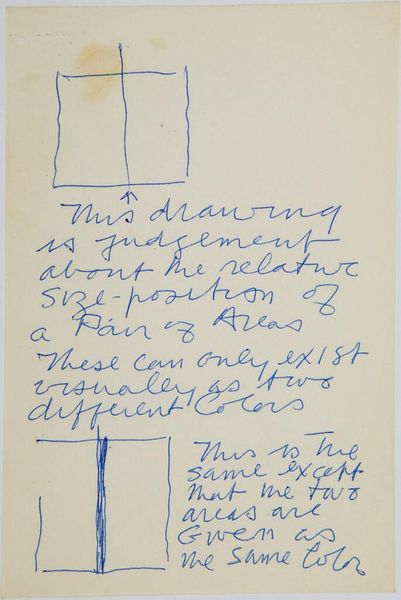 This drawing
is judgement
about the relative
size-position of
a Pair of Areas
These can only exist
visually as two
different Colors
This is The
same except
that the two
areas are
Given as
the same Color